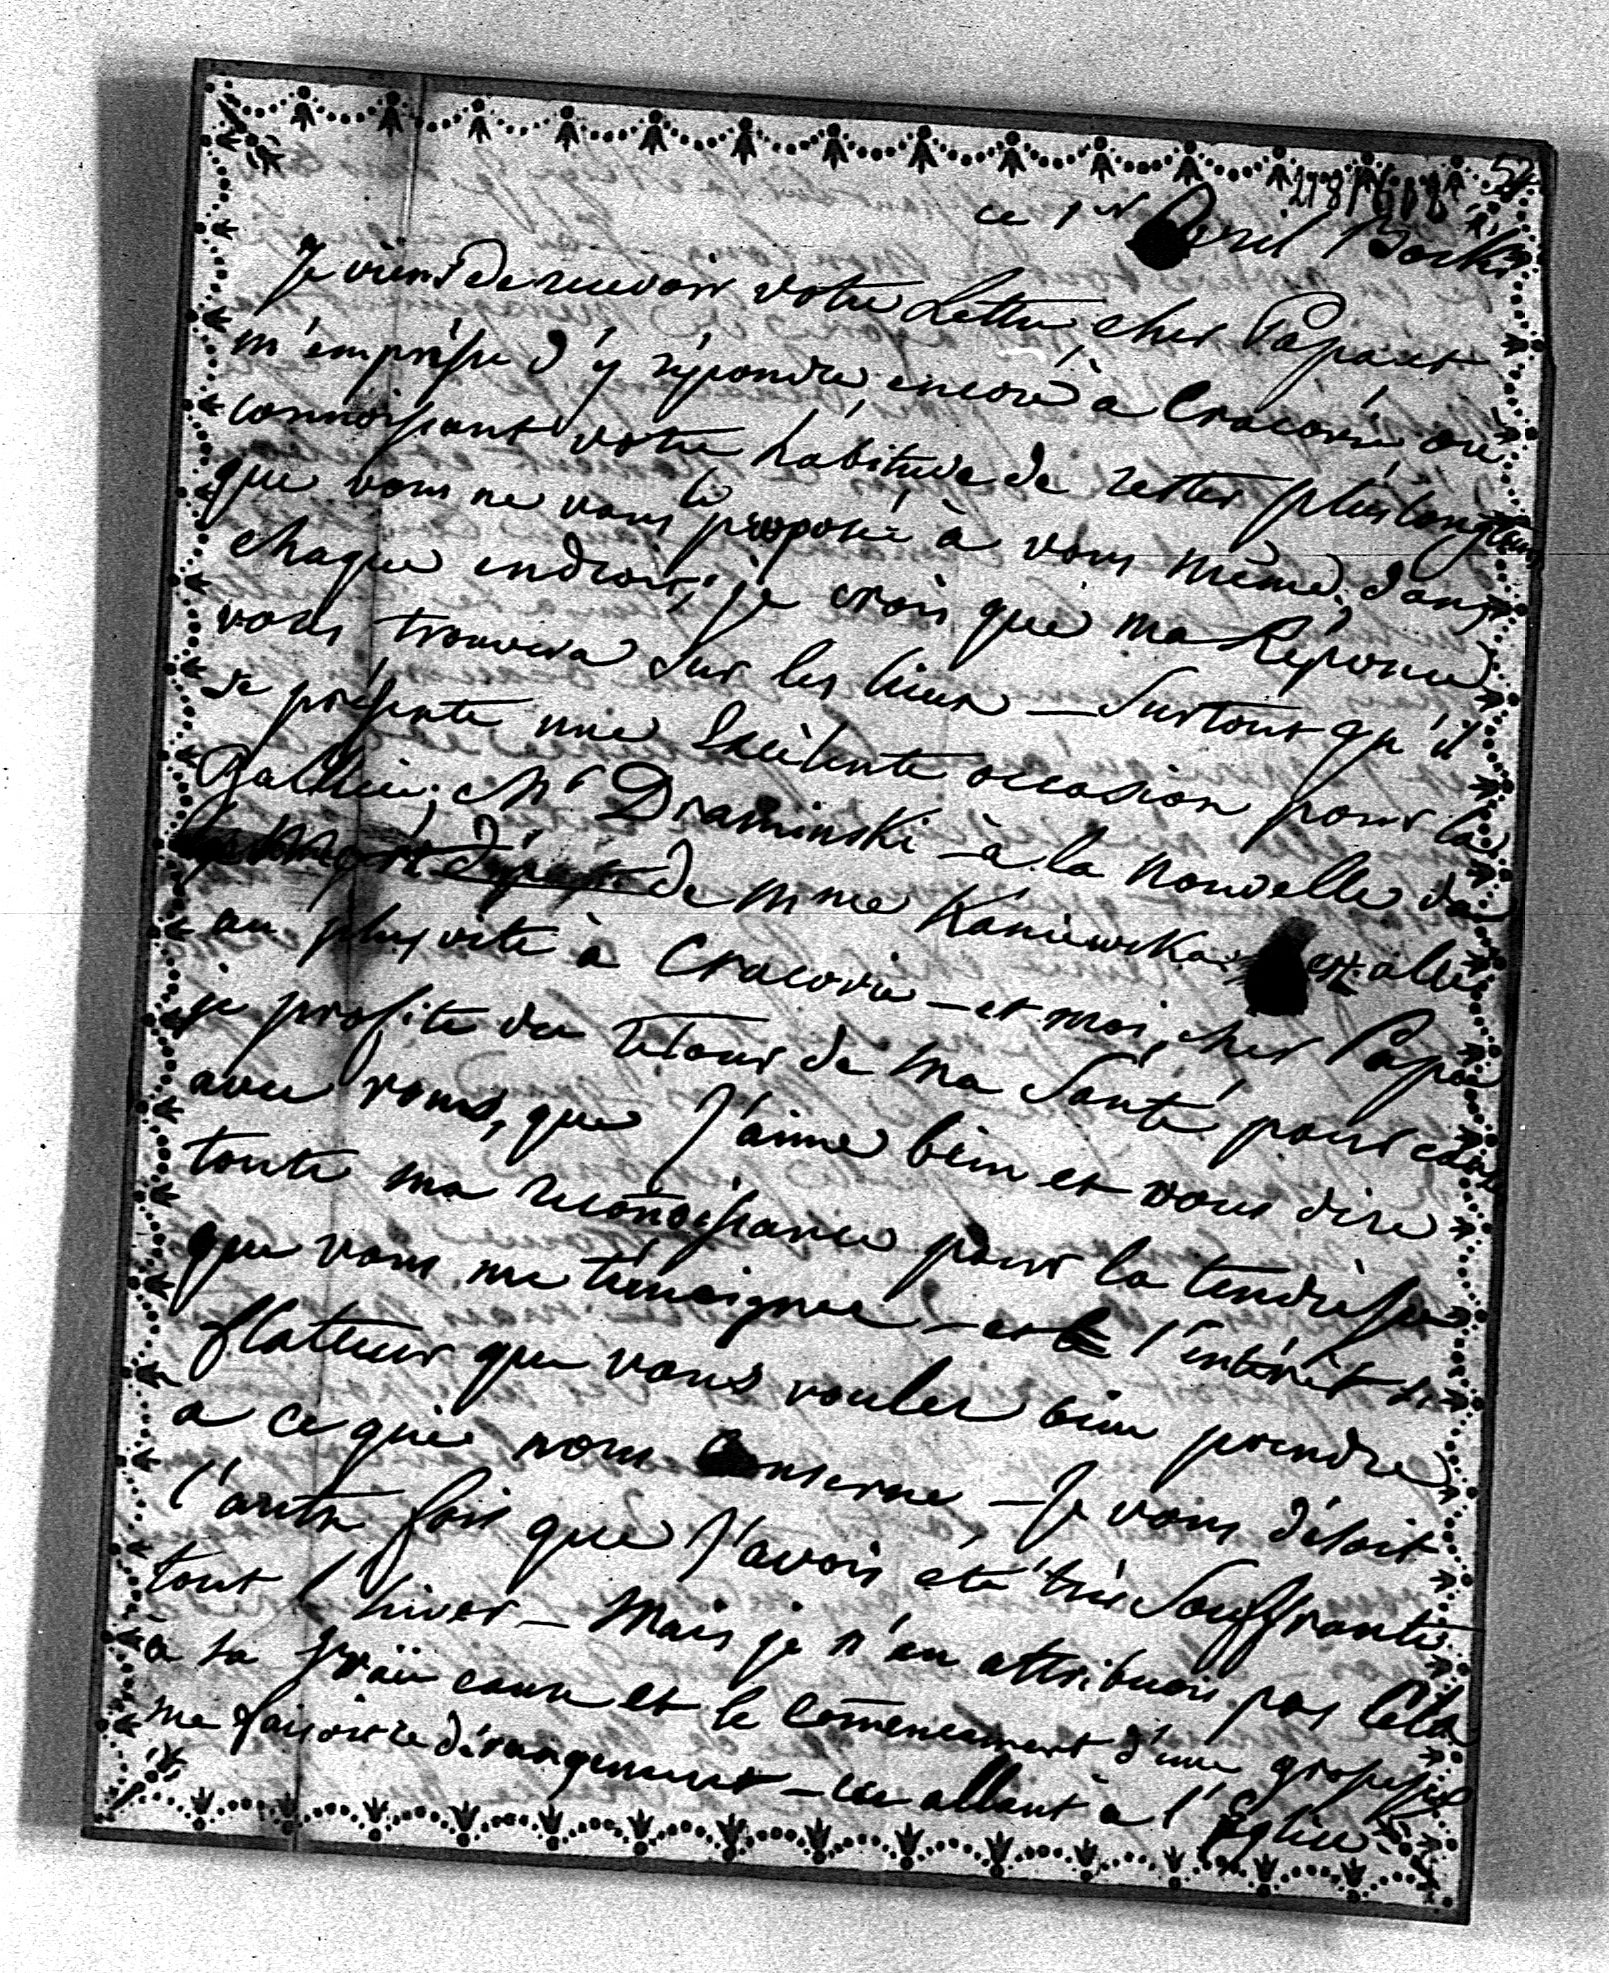 52
278/608
ce 1er Avril Bocki
Je viens de recevoir votre Lettre, cher Papa et
m'empresse d'y répondre encore à Cracovie où
connoissant votre habitude de rester plus longtems
que vous ne vous le proposié à vous même, dans
chaque endroit, je crois que ma Réponce
vous trouvera sur les lieux — Surtout qu'il
se présente une Exelente occasion pour la
Gallicie; Mr Draminski — à la nouvelle de
de Mme Kaniewska est allé
au plus vite à Cracovie — et moi, cher Papa
je profite du retour de ma Santé pour
avec vous, que j'aime bien et vous dire
toute ma reconoissance pour la tendresse
que vous me témoignee — et l'intérêt si
flateur que vous vouler bien prendre
a ce que nous conserne — Je vous
l'autre fois que j'avois eté très Souffrante
tout l'hiver — Mais je n'en attribuois pas cela
à sa vraïe cause et le comencement d'une grossesse
me faisoit ce dérangement — en allant à l'Eglise